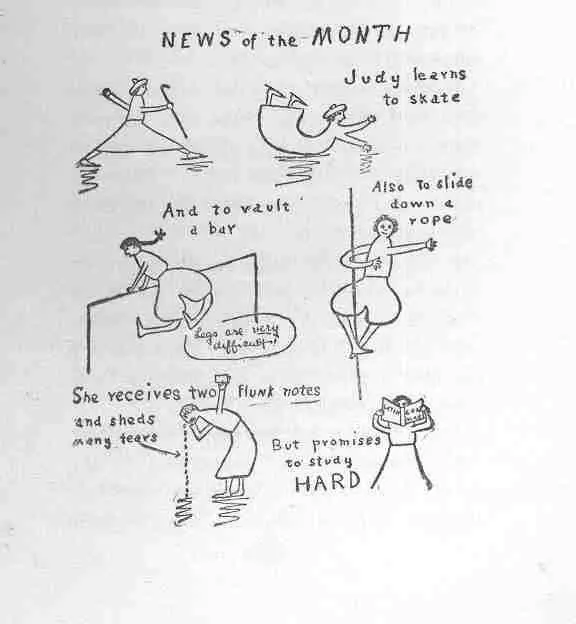 NEWS of the MONTH
Judy learns
to skate
And to vault
a bar
Also to slide
down a
rope
Legs are very
difficult!
She receives two flunk notes
and sheds
many tears
But promises
to study
HARD